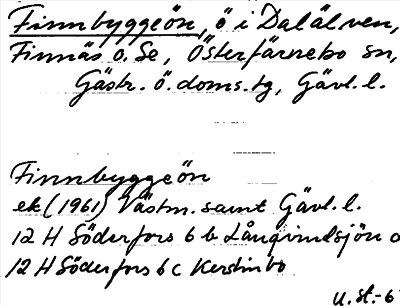 Finnbyggeön, ö i Dalälven,
Finnäs o. Se, Österfärnebo sn,
Gästr. ö. doms. tg, Gävl. l.
Finnbyggeön
ek (1961) Västm. samt Gävl. l.
12 H Söderfors 6 b Långvindsjön o
12 H Söderfors 6 c Kerstinbo
U. St. - 6